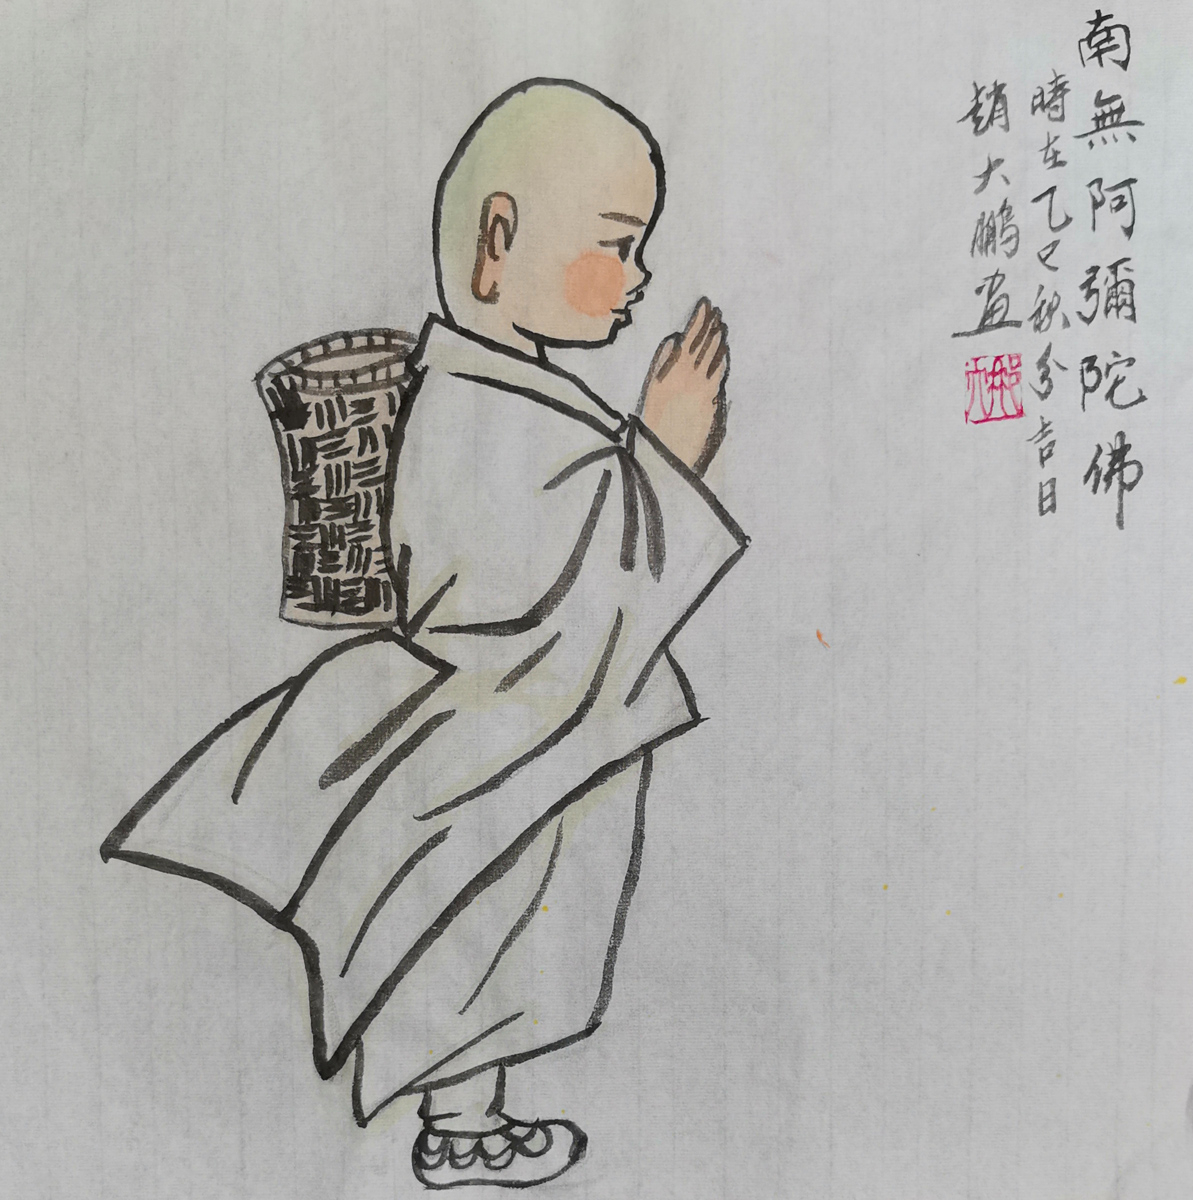 南無阿彌陀佛
時在乙巳秋分吉日
趙大鵬畫